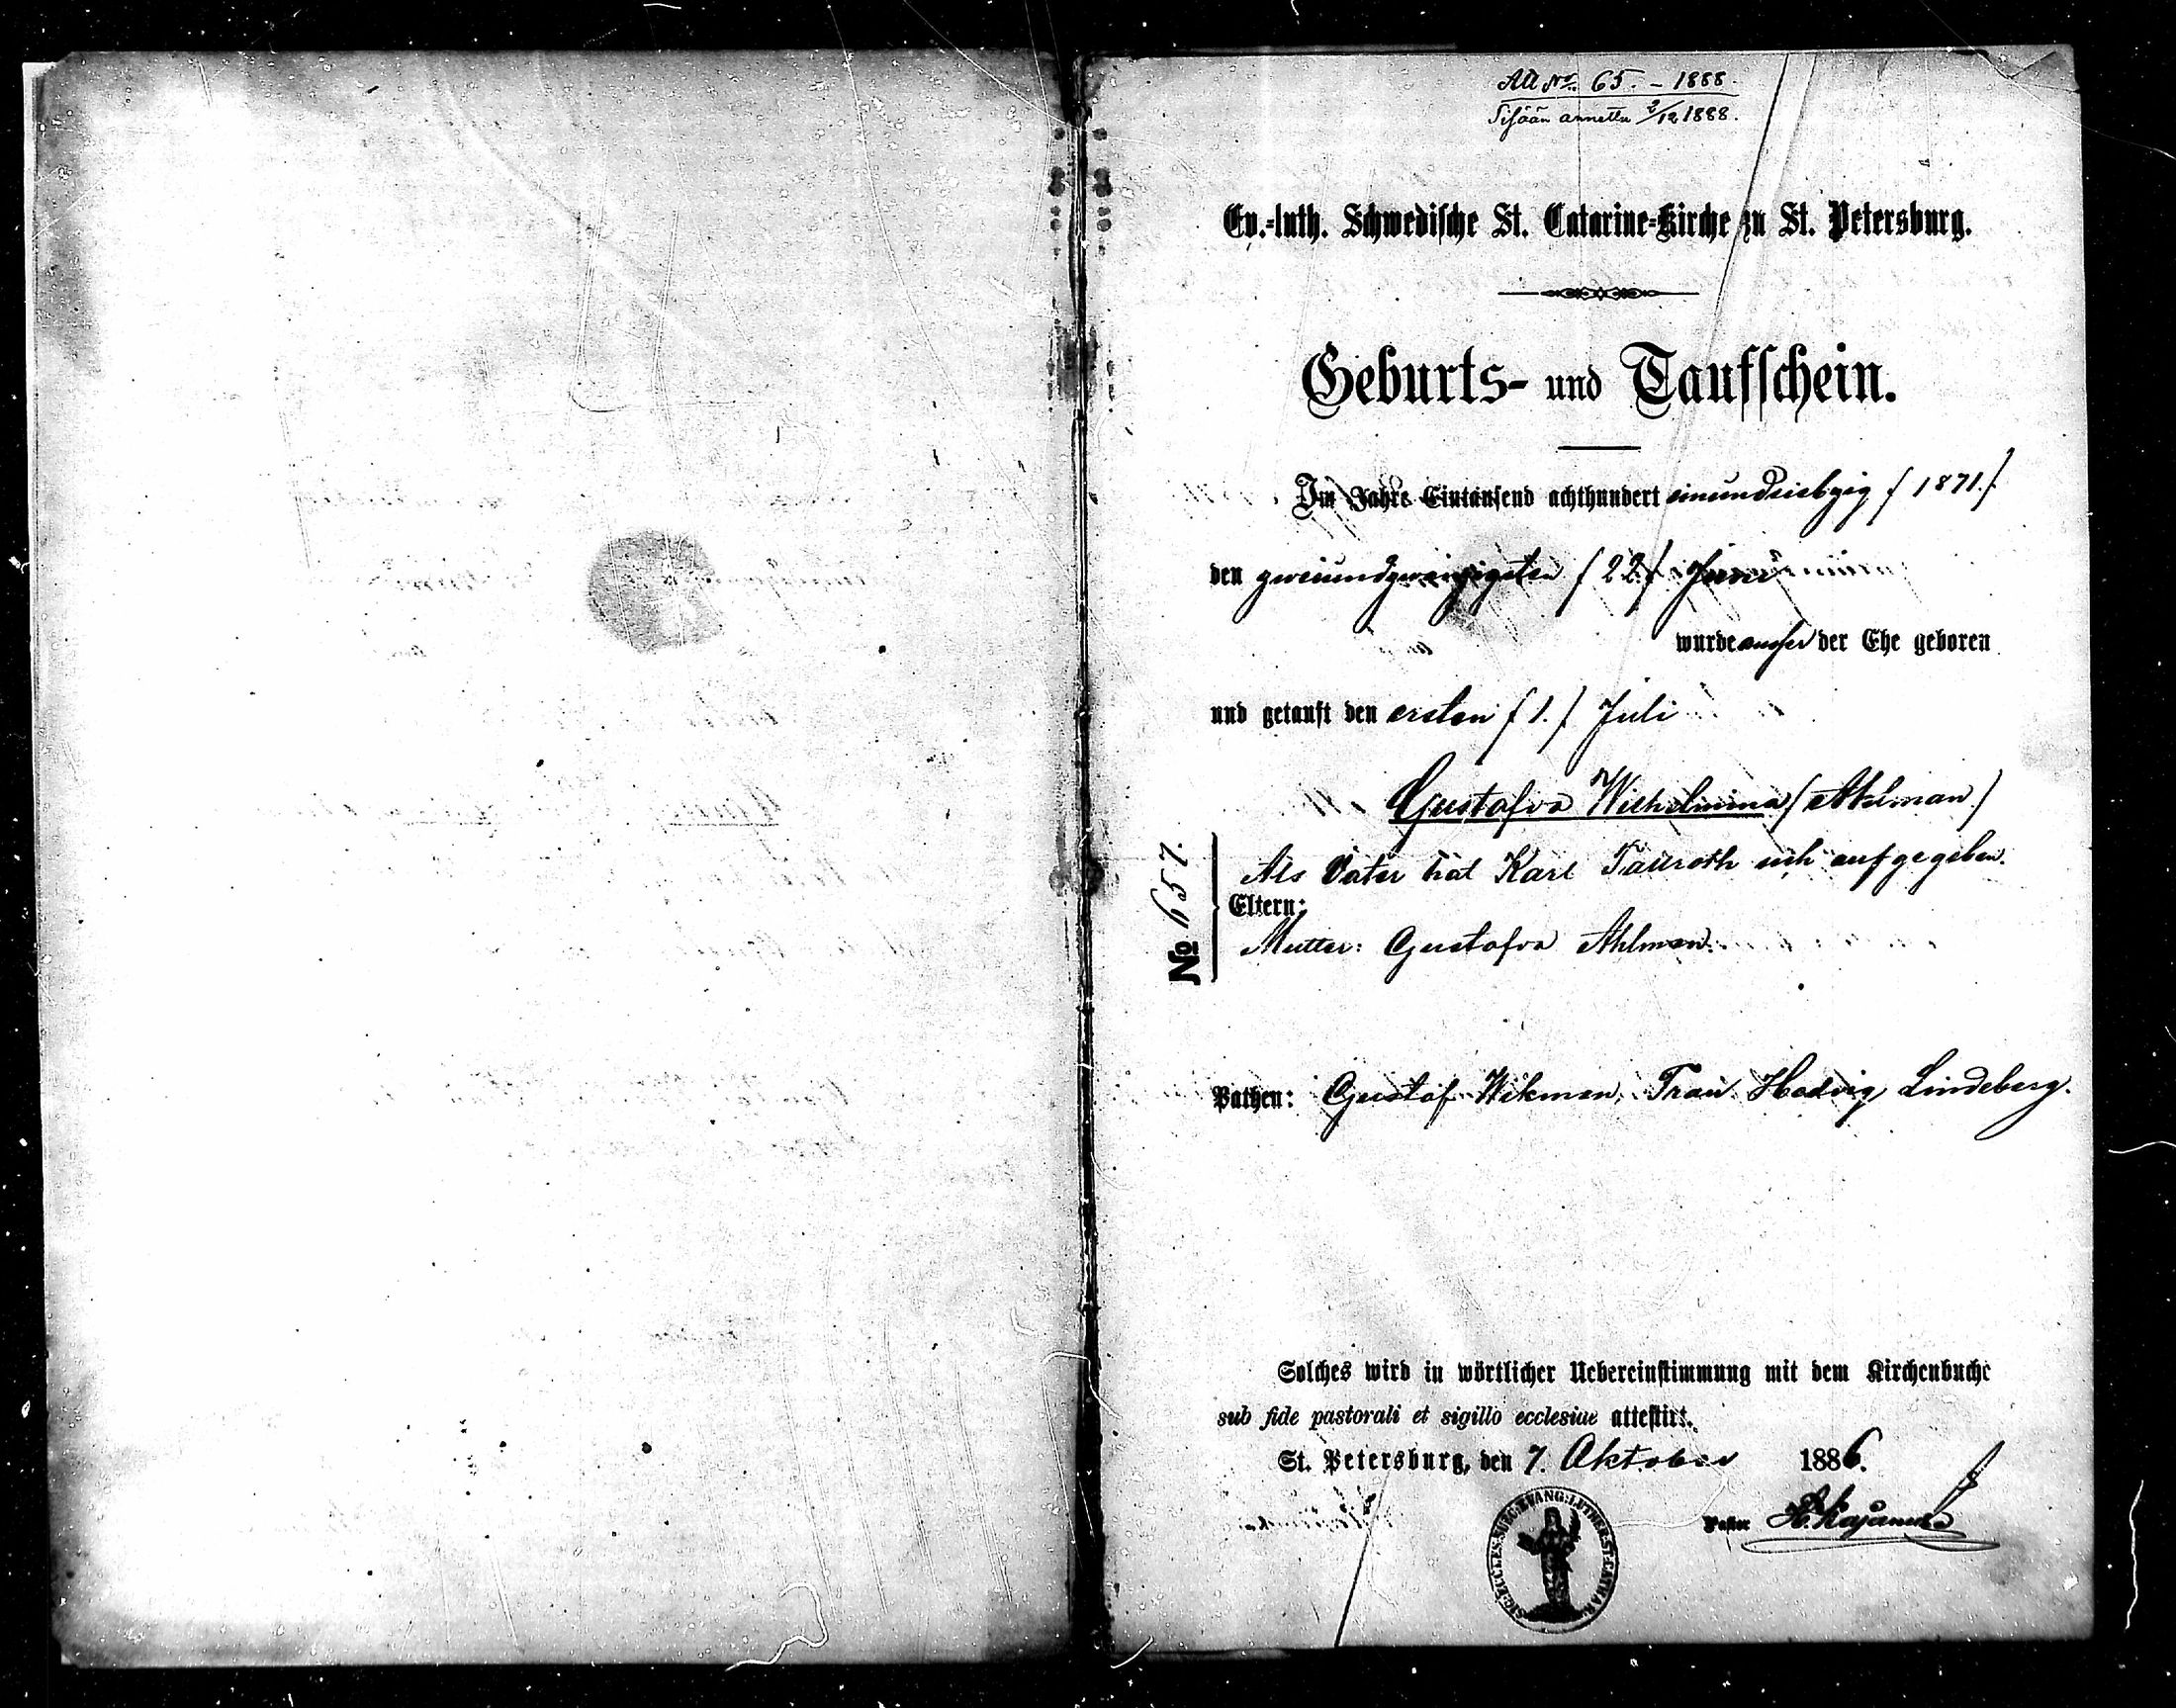 All No. 65. – 1888.
Sisään annettu 2/12 1888.
Ev.-luth. Schwedische St. Catarine-Kirche zu St. Petersburg.
Geburts- und Taufschein.
Im Jahre Eintausend achthundert einundsiebzig / 1871./
den zweiundzwanzigsten / 22/ Juni
wurde ausser der Ehe geboren
und getauft den ersten / 1./ Juli
Gustafva Wilhelmina (Ahlman)
Als Vater hat Karl Tauroth sich aufgegeben.
№ 657.
Eltern:
Mutter: Gustafva Ahlman.
Pathen: Gustaf Wikman, Frau Hedvig Lindeberg.
Solches wird in wörtlicher Uebereinstimmung mit dem Kirchenbuche
sub fide pastorali et sigillo ecclesiae attestirt.
St. Petersburg, den 7. Oktober 1886.
Pastor H. Kajanus
SIG: ECCLES: SUEC: EVANG: LUTHER: ST: CATHAR: